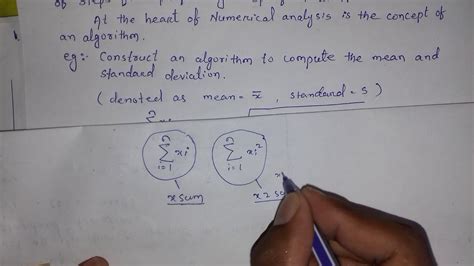 of steps
At the heart of Numerical analysis is the concept of
an algorithm.
eg:- Construct an algorithm to compute the mean and
standard deviation.
(denoted as mean = x̄, standard = s)
n ∑ i=1 xi   n ∑ i=1 xi²
x sum   x 2 s